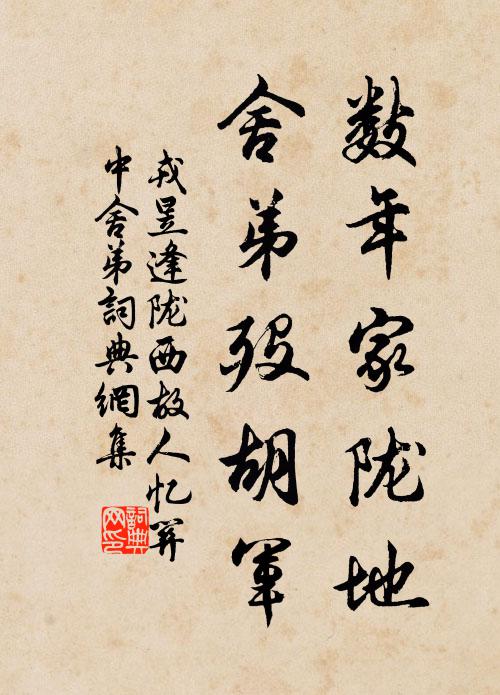 数年家陇地
舍弟殁胡军
戎昱逢陇西故人忆关
中舍弟詞典網集
詞典
网印